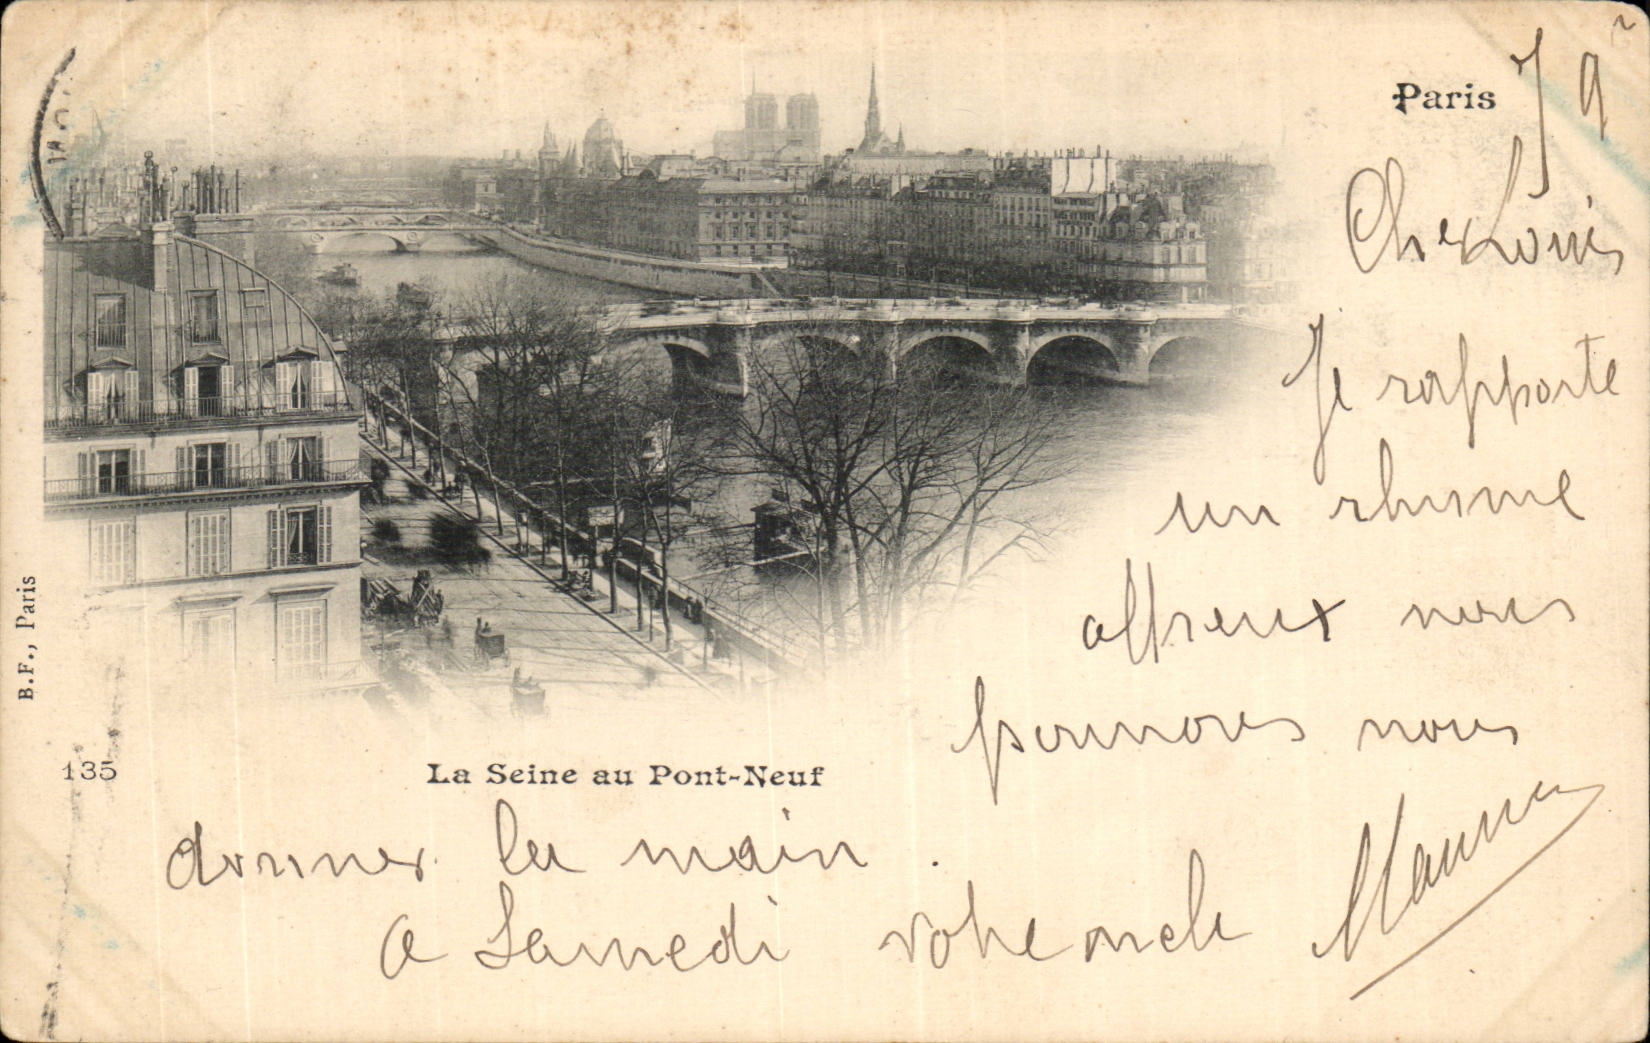 Paris J 9
Cher Louis
Je rapporte
un rhume
affreux nous
pourrons nous
B.F., Paris
135
La Seine au Pont-Neuf
donner la main.
a Samedi votre oncle